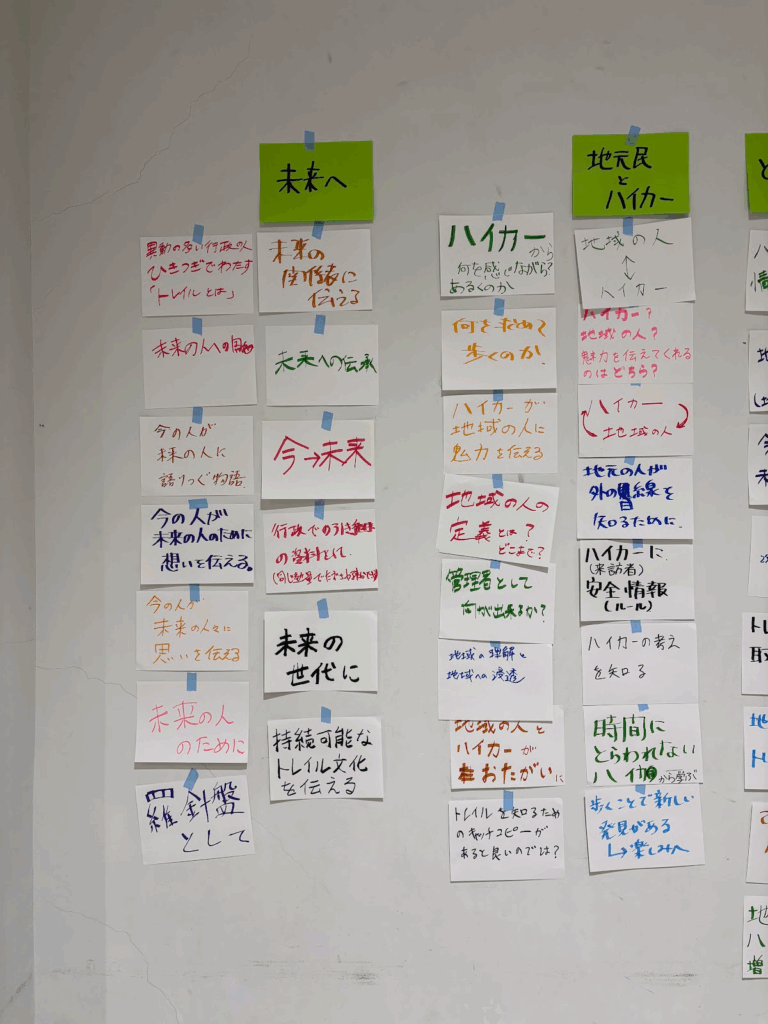 未来へ
異動の多い行政の人
ひきつぎでわたす
「トレイルとは」
未来の
関係者に
伝える
未来の人への
未来への伝承
今の人が
未来の人に
語りつぐ物語
今→未来
今の人が
未来の人のために
想いを伝える。
行政での引き継ぎ
の資料として
今の人が
未来の人々に
思いを伝える
未来の
世代に
未来の人
のために
持続可能な
トレイル文化
を伝える
羅針盤
として
地元民
と
ハイカー
ハイカーから
何を感じながら?
あるくのか
地域の人
↕
ハイカー
何を求めて
歩くのか
ハイカー?
地域の人?
魅力を伝えてくれる
のはどちら?
ハイカーが
地域の人に
魅力を伝える
ハイカー
地域の人
地域の人の
定義とは?
どこまで?
地元の人が
外の目線を
知るために
管理者として
何が出来るか?
ハイカーに
(来訪者)
安全情報
(ルール)
地域の理解と
地域への浸透
ハイカーの考え
を知る
地域の人と
ハイカーが
おたがいに
時間に
とらわれない
ハイカーから学ぶ
トレイルを知るため
のキャッチコピーが
あると良いのでは?
歩くことで新しい
発見がある
↳楽しみへ